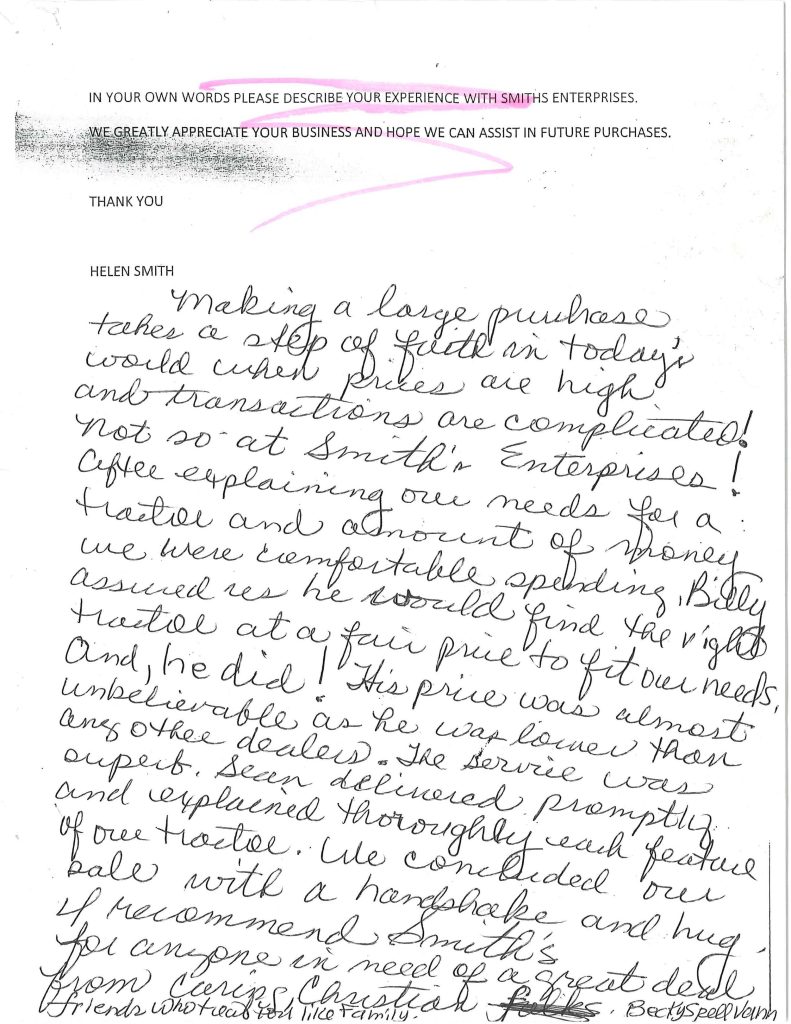 IN YOUR OWN WORDS PLEASE DESCRIBE YOUR EXPERIENCE WITH SMITHS ENTERPRISES.
WE GREATLY APPRECIATE YOUR BUSINESS AND HOPE WE CAN ASSIST IN FUTURE PURCHASES.
THANK YOU
HELEN SMITH
Making a large purchase
takes a step of faith in today's
world when prices are high
and transactions are complicated!
Not so at Smith's Enterprises!
After explaining our needs for a
tractor and amount of money
we were comfortable spending, Billy
assured us he would find the right
tractor at a fair price to fit our needs.
And, he did! His price was almost
unbelievable as he was lower than
any other dealers. The service was
superb. Sean delivered promptly
and explained thoroughly each feature
of our tractor. We concluded our
sale with a handshake and hug.
I recommend Smith's
for anyone in need of a great deal
from caring Christian folks.
friends who treat you like family. Becky Spell Vann